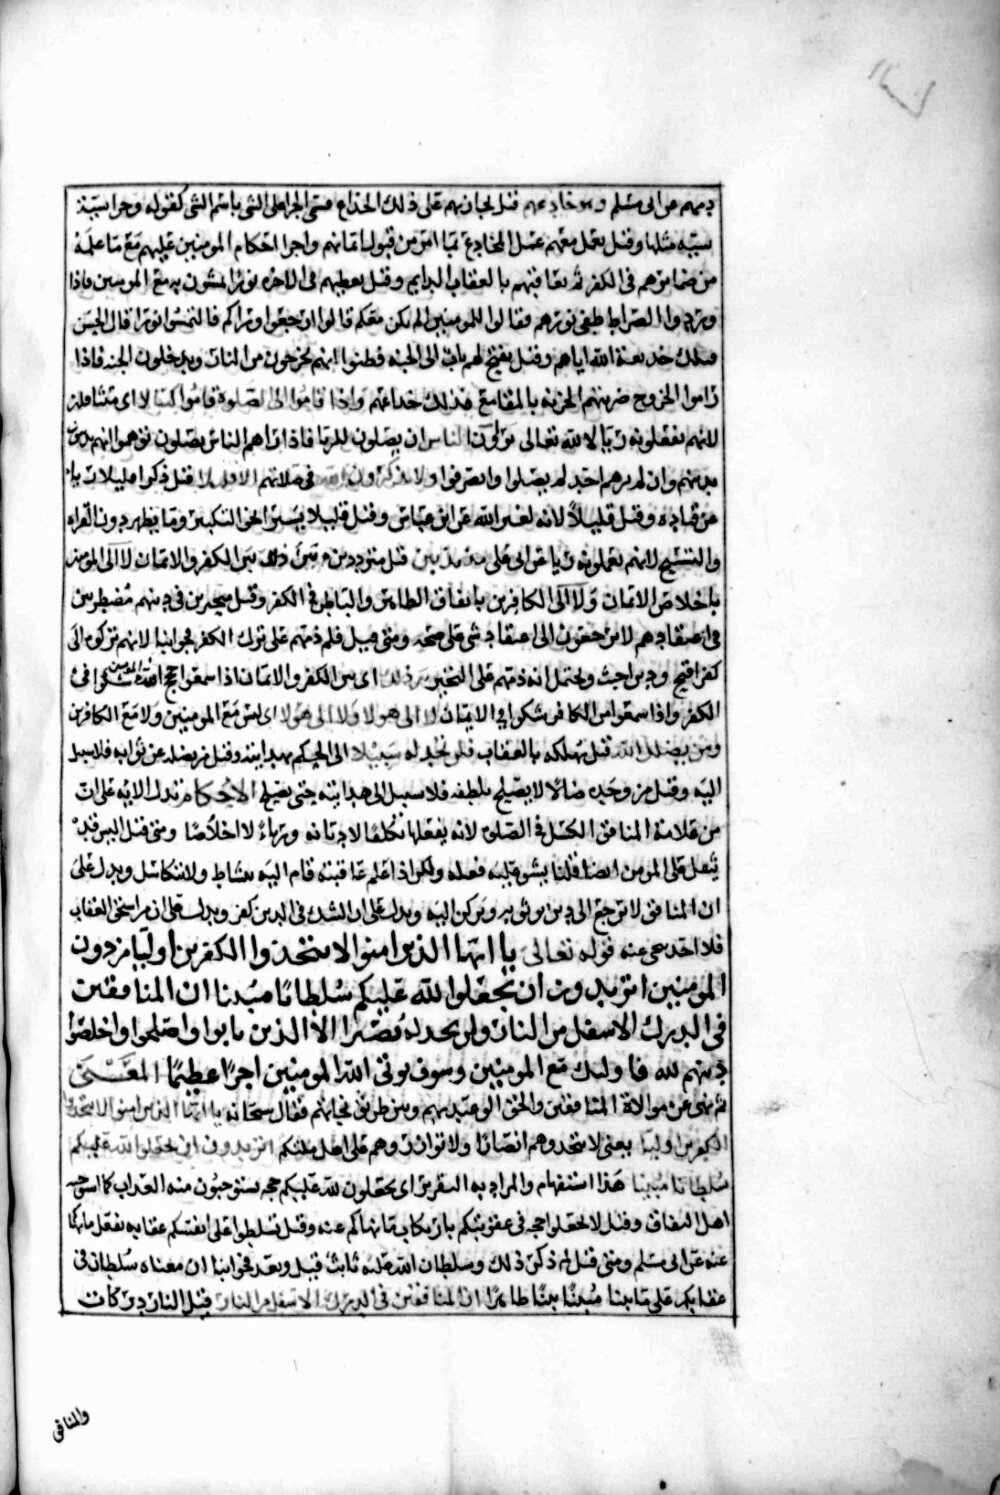 دينهم عن ابى مسلم وهو خادعهم قيل يجازيهم على ذلك الخداع فسمى الجزاء على الشى باسم الشى كقوله وجزا سيئة
سيئة مثلها وقيل يعمل معهم عمل المخادع بما امر من قبول ايمانهم واجرا احكام المومنين عليهم مع ما علمه
من ضمايرهم فى الكفر ثم يعاقبهم بالعقاب الدايم وقيل يعطيهم فى الاخرة نورا يمشون به مع المومنين فاذا
وردوا الصراط طفى نورهم فقالوا للمومنين الم نكن معكم قالوا ارجعوا وراكم فالتمسوا نورا قال الحسن
فتلك خديعة الله اياهم وقيل يفتح لهم باب الى الجنة فظنوا انهم يخرجون من النار ويدخلون الجنة فاذا
راموا الخروج ضربتهم الخزنة بالمقامع فذلك خداعهم واذا قاموا الى الصلوة قاموا كسالا اى متثاقلين
لانهم يفعلونه ريا لا لله تعالى يراون الناس ان يصلون للريا فاذا راهم الناس يصلون توهموا انهم
وان لم يرهم احد لم يصلوا وانصرفوا ولا يذكرون الله فى صلاتهم الا قليلا قيل ذكرا قليلا
عن قتاده وقيل قليلا لانه لغير الله عن ابن عباس وقيل قليلا يسيرا نحو التكبير وما يظهر دون القراة
والتسبيح لانهم يعملونه ريا عن ابى على مذبذبين قيل مترددين بين ذلك بين الكفر والايمان لا الى المومنين
باخلاص الايمان ولا الى الكافرين باتفاق الظاهر والباطن فى الكفر وقيل متحيرين فى دينهم مضطربين
فى اعتقادهم لا يرجعون الى اعتقاد شى على صحه ومتى قيل فلم ذمهم على ترك الكفر فجوابنا لانهم تركوه الى
كفر اقبح ودين اخبث ويحتمل انه ذمهم على التحير بين ذلك اى بين الكفر والايمان اذا سمعوا حجج المومنين شكوا فى
الكفر واذا سمعوا من الكافر شكوا فى الايمان لا الى هولا ولا الى هولا اى ليس مع المومنين ولا مع الكافرين
ومن يضلل الله قيل يهلكه بالعقاب فلن تجد له سبيلا الى الحكم بهدايته وقيل من يضله عن ثوابه فلا سبيل
اليه وقيل من وجده ضالا لا يصلح بلطفه فلا سبيل الى هدايته حتى يصلح الاحكام تدل الاية على ان
من علامة المنافق الكسل فى الصلوة لانه يفعلها تكلفا لا ديانة ورياء لا اخلاصا ومتى قيل اليس قد
يثقل على المومن ايضا قلنا يشق عليه فعله ولكن اذا علم عاقبته قام اليه بنشاط ولا يتكاسل ويدل على
ان المنافق لا يرجع الى دين يوثق به ويركن اليه ويدل على ان الشك فى الدين كفر ويدل على ان من استحق العقاب
فلا احد ينجى عنه قوله تعالى يا ايها الذين امنوا لا تتخذوا الكفرين اوليا من دون
المومنين اتريدون ان تجعلوا لله عليكم سلطانا مبينا ان المنافقين
فى الدرك الاسفل من النار ولن تجد لهم نصيرا الا الذين تابوا واصلحوا واخلصوا
دينهم لله فاولئك مع المومنين وسوف يوتى الله المومنين اجرا عظيما المعنى
ثم نهى عن موالاة المنافقين والحق الوعيد بهم وبين طريق نجاتهم فقال سبحانه يا ايها الذين امنوا لا تتخذوا
الكفرين اوليا يعنى لا تتخذوهم انصارا ولا توازروهم على اهل ملتكم اتريدون ان تجعلوا لله عليكم
سلطانا مبينا هذا استفهام والمراد به التقرير اى يجعلون لله عليكم حجه يستوجبون منه العذاب كما استوجبه
اهل النفاق وقيل لا تجعلوا حجة فى عقوبتكم بارتكاب ما نهاكم عنه وقيل تسلطوا على انفسكم عقابه بفعل ما نهاكم
عنه عن ابى مسلم ومتى قيل لم ذكر ذلك وسلطان الله عليه ثابت قبل وبعد فجوابنا ان معناه سلطان فى
عقابكم على ما بينا مبينا بينا ظاهرا ان المنافقين فى الدرك الاسفل من النار قيل النار دركات
والمنافق